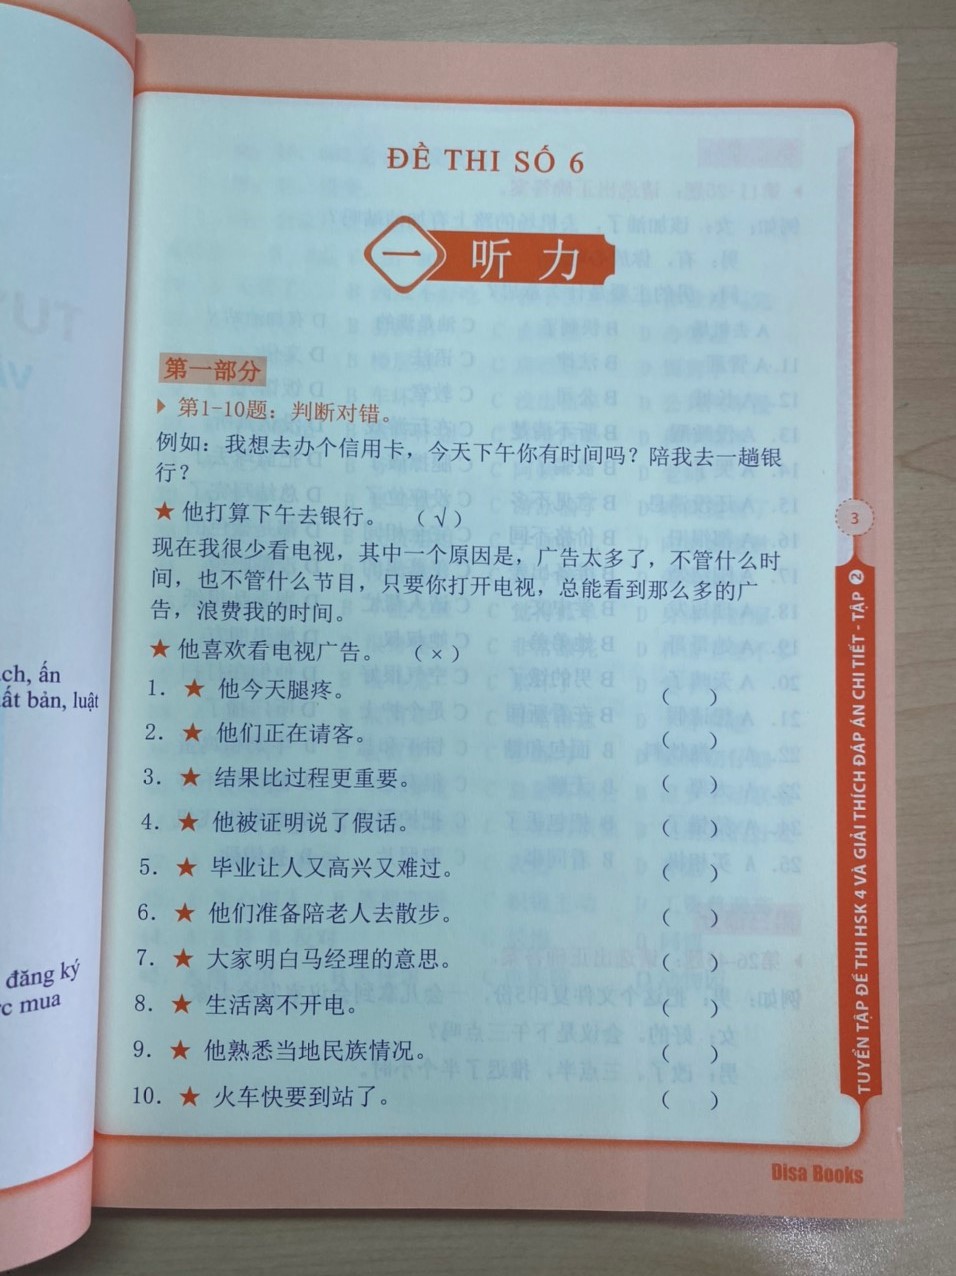 ĐỀ THI SỐ 6
一 听 力
第一部分
第1-10题：判断对错。
例如：我想去办个信用卡，今天下午你有时间吗？陪我去一趟银
行？
★ 他打算下午去银行。 （ √ ）
现在我很少看电视，其中一个原因是，广告太多了，不管什么时
间，也不管什么节目，只要你打开电视，总能看到那么多的广
告，浪费我的时间。
★ 他喜欢看电视广告。 （ × ）
1. ★ 他今天腿疼。 （ ）
2. ★ 他们正在请客。 （ ）
3. ★ 结果比过程更重要。 （ ）
4. ★ 他被证明说了假话。 （ ）
5. ★ 毕业让人又高兴又难过。 （ ）
6. ★ 他们准备陪老人去散步。 （ ）
7. ★ 大家明白马经理的意思。 （ ）
8. ★ 生活离不开电。 （ ）
9. ★ 他熟悉当地民族情况。 （ ）
10. ★ 火车快要到站了。 （ ）
3
TUYỂN TẬP ĐỀ THI HSK 4 VÀ GIẢI THÍCH ĐÁP ÁN CHI TIẾT - TẬP 2
Disa Books
ch, ấn
ất bản, luật
đăng ký
c mua